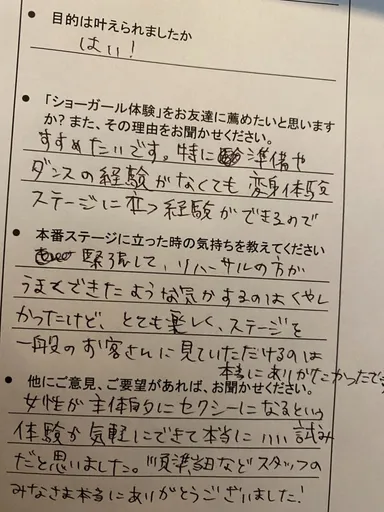 ● 目的は叶えられましたか
はい!
● 「ショーガール体験」をお友達に薦めたいと思います
か? また、その理由をお聞かせください。
すすめたいです。特に準備や
ダンスの経験がなくても変身体験
ステージに立つ経験ができるので
● 本番ステージに立った時の気持ちを教えてください
緊張して、リハーサルの方が
うまくできたような気がするのはくやし
かったけど、とても楽しく、ステージを
一般のお客さんに見ていただけるのは
本当にありがたかったです
● 他にご意見、ご要望があれば、お聞かせください。
女性が主体的にセクシーになるという
体験が気軽にできて本当にいい試み
だと思いました。準備などスタッフの
みなさま本当にありがとうございました!